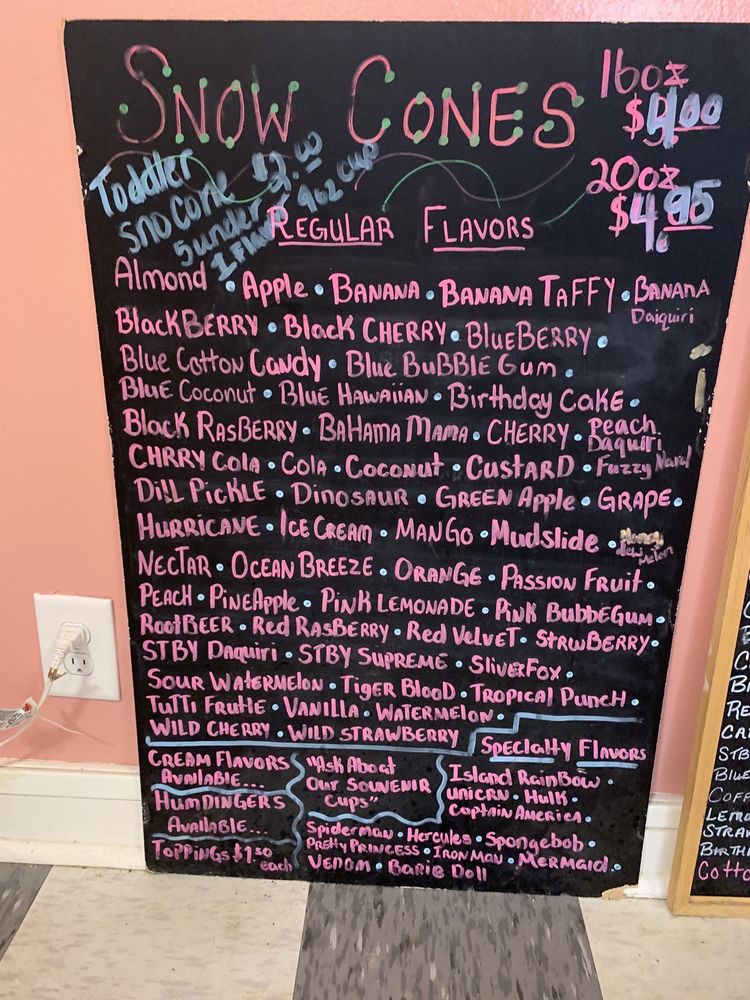 SNOW CONES
16oz
$4.00
20oz
$4.95
Toddler $2.00
SNO CONE 4oz CUP
5 under
1 Flavor
REGULAR FLAVORS
Almond • Apple • BANANA • BANANA TAFFY • BANANA Daiquiri
BlackBERRY • Black CHERRY • BlueBERRY •
Blue Cotton Candy • Blue BuBBlE Gum •
BluE Coconut • BluE HAWAiiAN • Birthday CaKE •
Black RasBERRY • BaHama Mama • CHERRY • Peach Daquiri
CHRRY Cola • Cola • Coconut • CUSTARD • Fuzzy Navel
Dill PicKlE • DiNOSAUR • GREEN Apple • GRAPE •
HURRiCANE • ICE CREAM • MANGO • Mudslide • Honey dew Melon
NECTAR • OCEAN BREEZE • ORANGE • PASSION FRUIT •
PEACH • PiNEApple • PiNK LEMONADE • PiNK BubbEGum •
RootBEER • Red RasBERRY • Red VelvET • STRWBERRY •
STBY Daquiri • STBY SUPREME • SliVERFox •
SOUR WATERMELON • TiGER BlooD • TROPICAL PUNCH •
TuTTi FRuTiE • VANiLLA • WATERMELON •
WILD CHERRY • WILD STRAWBERRY
SpEcialty FlavoRs
CREAM FLAVORS
AvailABlE...
HumDiNGERS
Available...
ToppiNGs $1.50
each
"Ask About
OuR SOUVENIR
Cups"
Island RainBow •
UNICRN • Hulk •
Captain America •
Spiderman • Hercules • Spongebob •
PRETTy PRINCESS • IRON MAN • MERMAID •
VENOM • BARiE Doll